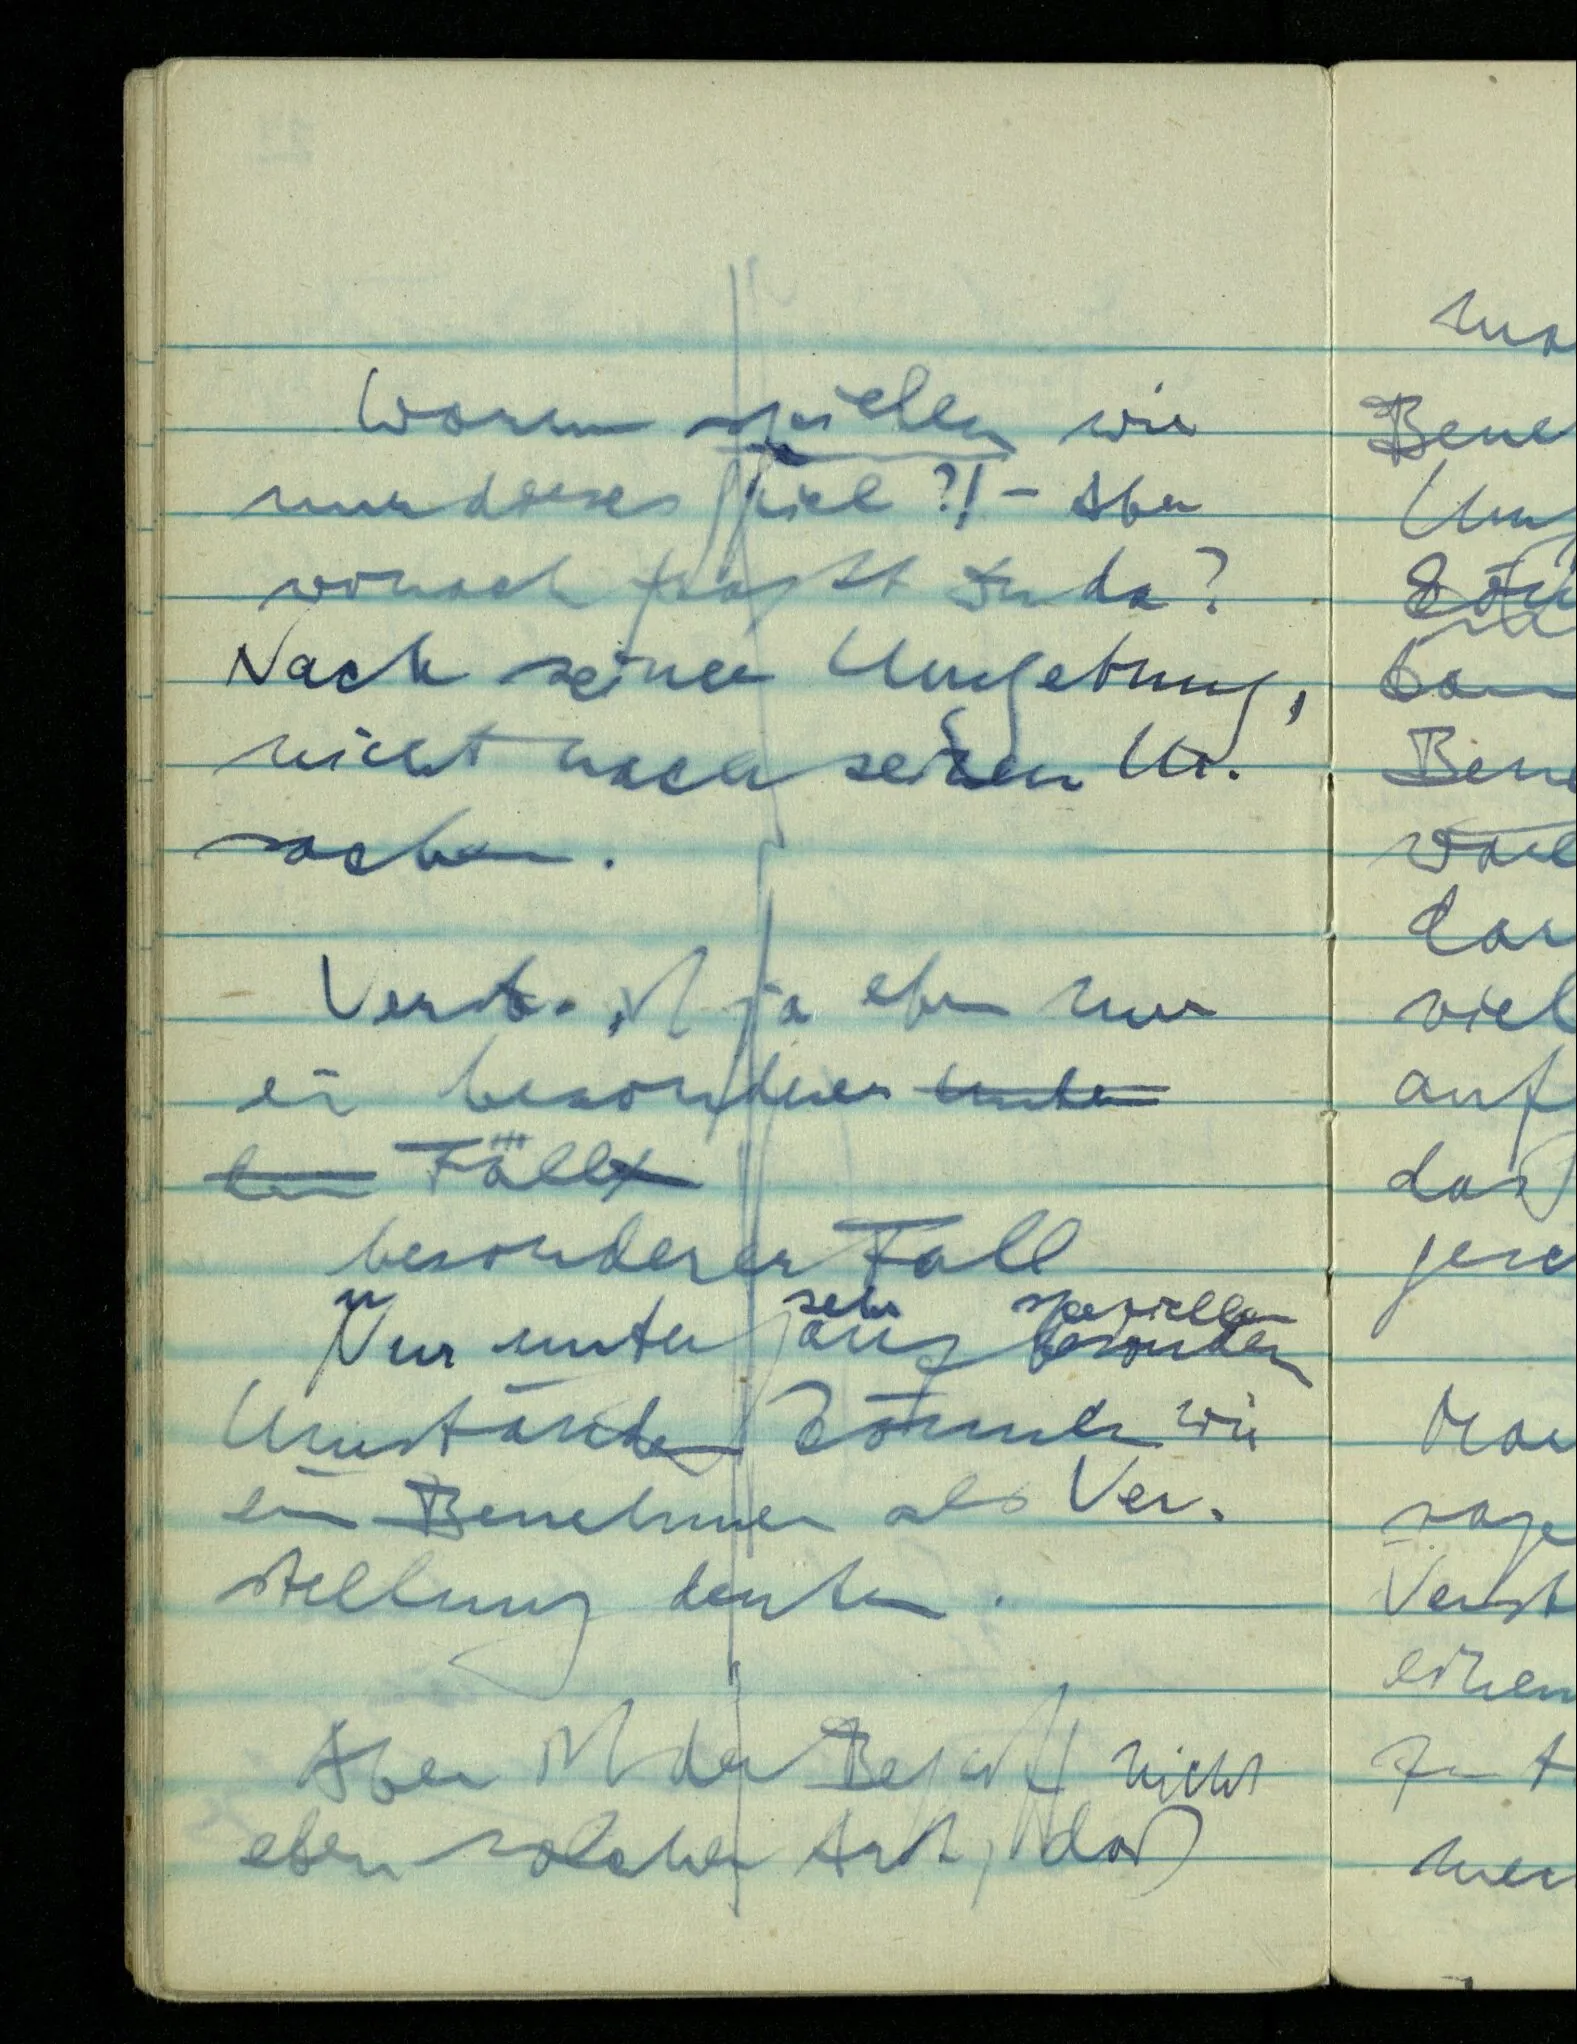 Warum spielen wir
nur dieses Spiel?! – Aber
wonach fragst Du da?
Nach seiner Umgebung,
nicht nach seinen Ur-
sachen.
Verst. ist ja eben nur
ein besonderer unter
den Fälle
besonderer Fall
sehr speziellen
Nur unter ganz besondern
Umständen können wir
ein Benehmen als Ver-
stellung deuten.
Aber ist der Begriff nicht
eben solcher Art, daß
Bene
Um
viel
auf
daß
Verst